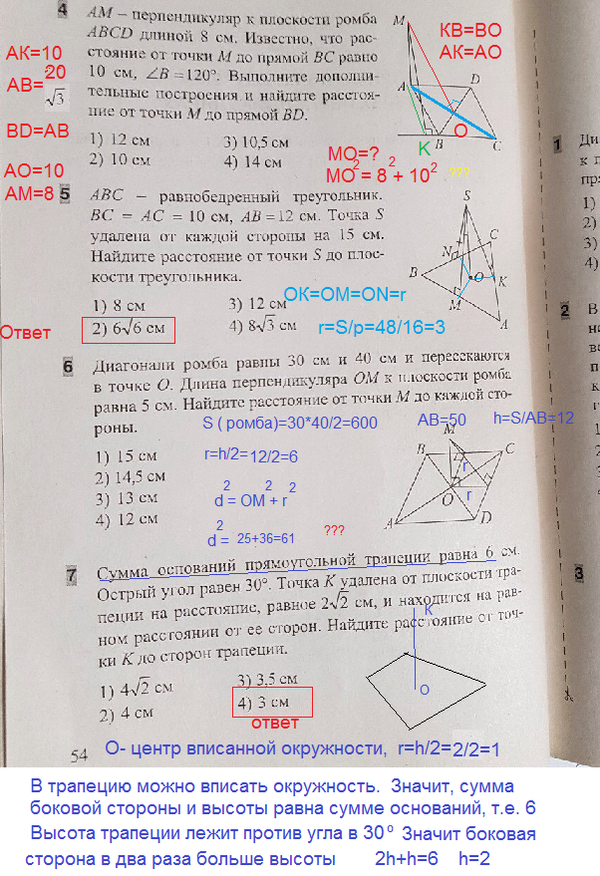 4
АМ – перпендикуляр к плоскости ромба
ABCD длиной 8 см. Известно, что рас-
стояние от точки M до прямой BC равно
10 см, ∠B = 120°. Выполните дополни-
тельные построения и найдите расстоя-
ние от точки M до прямой BD.
1) 12 см 3) 10,5 см
2) 10 см 4) 14 см
АК=10
АВ= 20
√3
BD=AB
AO=10
AM=8
М
A
D
B
C
O
K
КВ=ВО
АК=АО
МО=?
МО² = 8² + 10² ???
5
ABC – равнобедренный треугольник.
BC = AC = 10 см, AB = 12 см. Точка S
удалена от каждой стороны на 15 см.
Найдите расстояние от точки S до плос-
кости треугольника.
1) 8 см 3) 12 см
2) 6√6 см 4) 8√3 см
Ответ
ОК=ОМ=ON=r
r=S/p=48/16=3
S
C
N
B
O
K
M
A
6
Диагонали ромба равны 30 см и 40 см и пересекаются
в точке O. Длина перпендикуляра OM к плоскости ромба
равна 5 см. Найдите расстояние от точки M до каждой сто-
роны.
S ( ромба)=30*40/2=600 АВ=50 h=S/AB=12
1) 15 см
2) 14,5 см
3) 13 см
4) 12 см
r=h/2=12/2=6
d² = OM² + r²
d² = 25+36=61 ???
M
B
C
r
O
r
A
D
7
Сумма оснований прямоугольной трапеции равна 6 см.
Острый угол равен 30°. Точка K удалена от плоскости тра-
пеции на расстояние, равное 2√2 см, и находится на рав-
ном расстоянии от ее сторон. Найдите расстояние от точ-
ки K до сторон трапеции.
1) 4√2 см 3) 3,5 см
2) 4 см 4) 3 см
ответ
К
О
54
О- центр вписанной окружности, r=h/2=2/2=1
В трапецию можно вписать окружность. Значит, сумма
боковой стороны и высоты равна сумме оснований, т.е. 6
Высота трапеции лежит против угла в 30° Значит боковая
сторона в два раза больше высоты 2h+h=6 h=2
1
Ди
к п
пр
1)
2)
3)
4)
2
В
3